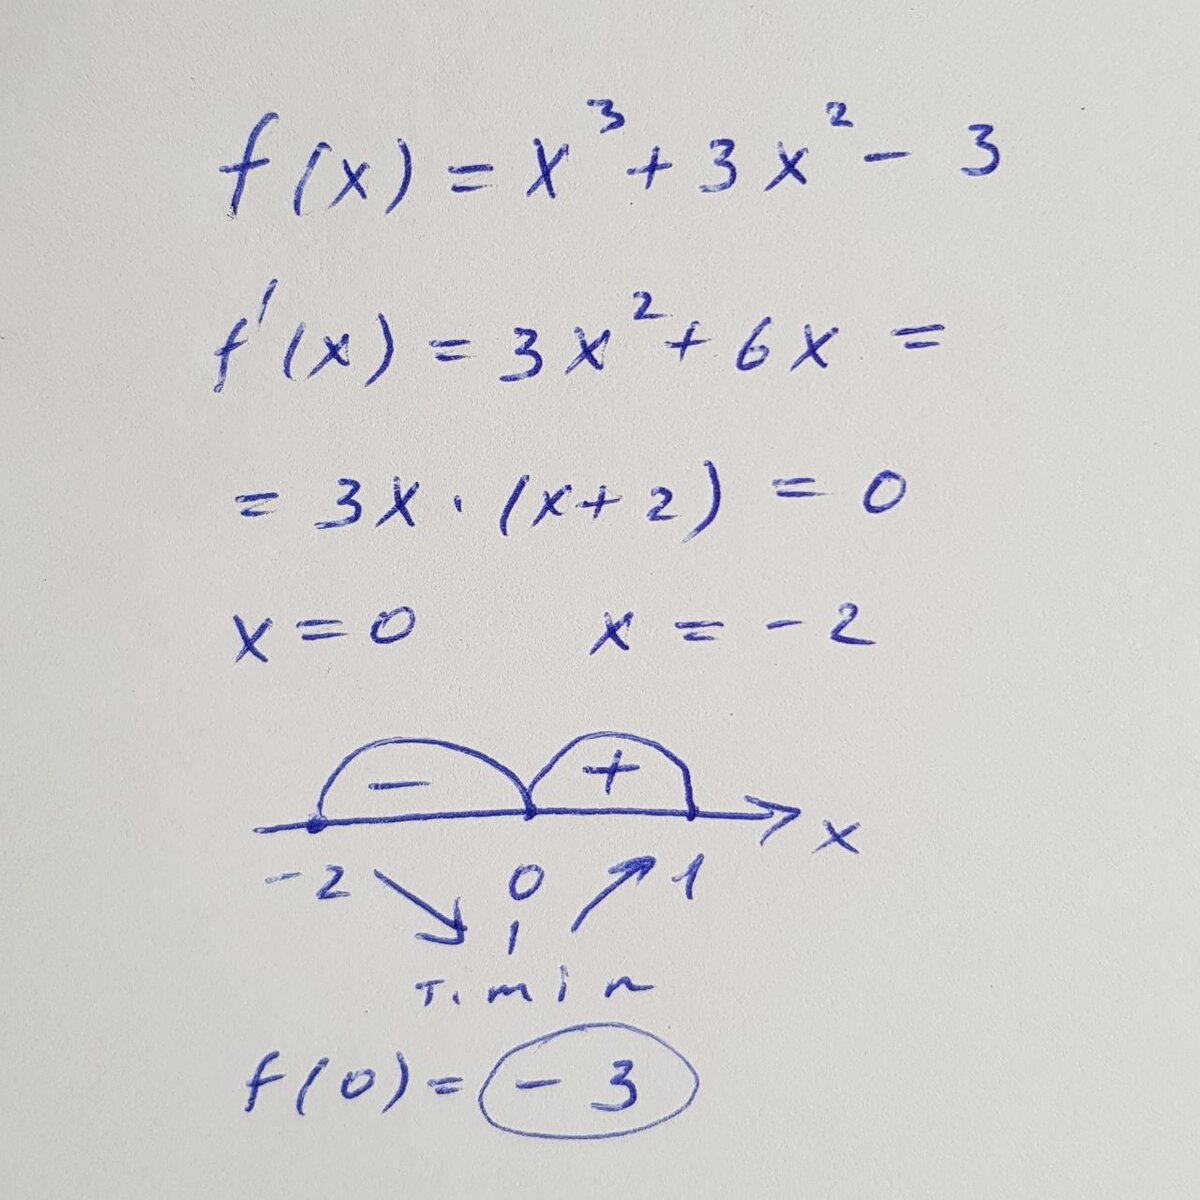 f(x) = x³ + 3x² - 3
f'(x) = 3x² + 6x =
= 3x · (x + 2) = 0
x = 0 x = -2
- +
-2 0 1 x
т. min
f(0) = -3